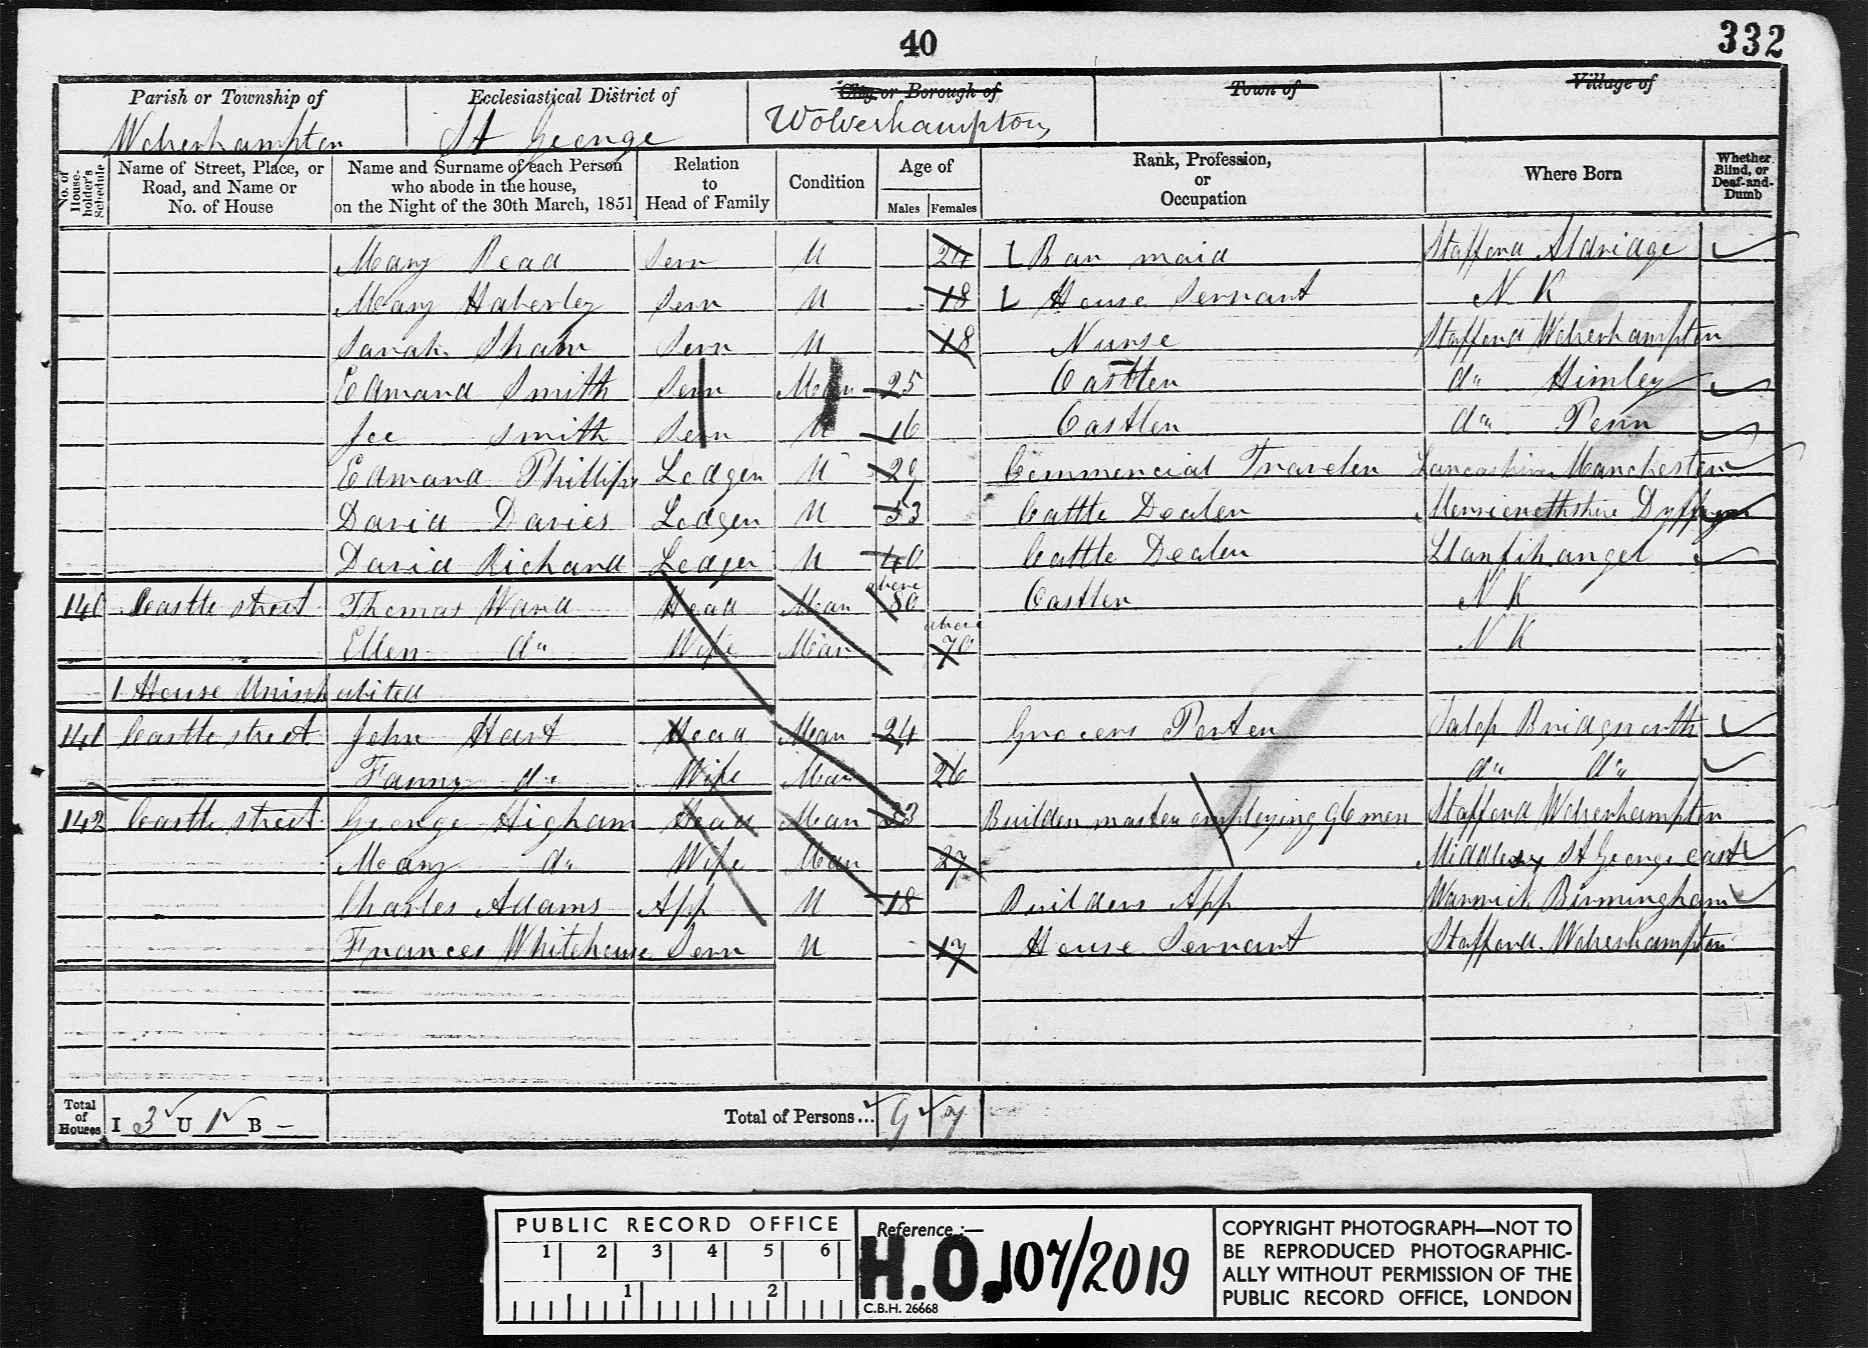 40
332
Parish or Township of
Ecclesiastical District of
City or Borough of
Town of
Village of
Wolverhampton
St George
Wolverhampton
No. of House-holder's Schedule
Name of Street, Place, or Road, and Name or No. of House
Name and Surname of each Person who abode in the house, on the Night of the 30th March, 1851
Relation to Head of Family
Condition
Age of
Males
Females
Rank, Profession, or Occupation
Where Born
Whether Blind, or Deaf-and-Dumb
Mary Read Serv U 24 Bar maid Stafford Aldridge
Mary Haberley Serv U 18 House Servant N K
Sarah Serv U 18 Nurse Stafford Wolverhampton
Edmand Smith Serv Mar 25 Ostler do Himley
Joe Smith Serv U 16 Ostler do Penn
Edmand Phillips Lodger U 29 Commercial Traveler Lancashire Manchester
David Davies Lodger U 53 Cattle Dealer Merionethshire
David Richard Lodger U 40 Cattle Dealer Llanfihangel
140 Castle street Thomas Ward Head Mar above 80 Ostler N K
Ellen do Wife Mar above 70 N K
1 House Uninhabited
141 Castle street John Hart Head Mar 24 Grocers Porter Salop Bridgnorth
Fanny do Wife Mar 26 do do
142 Castle street George Higham Head Mar 33 Builder master employing 96 men Stafford Wolverhampton
Mary do Wife Mar 27 Middlesex St George east
Charles Adams App U 18 Builders App Warwick Birmingham
Frances Whitehouse Serv U 17 House Servant Stafford Wolverhampton
Total of Houses I 3 U 1 B - Total of Persons... 9 7
PUBLIC RECORD OFFICE
1 2 3 4 5 6
1 2
Reference :—
H.O. 107/2019
C.B.H. 26668
COPYRIGHT PHOTOGRAPH—NOT TO
BE REPRODUCED PHOTOGRAPHIC-
ALLY WITHOUT PERMISSION OF THE
PUBLIC RECORD OFFICE, LONDON